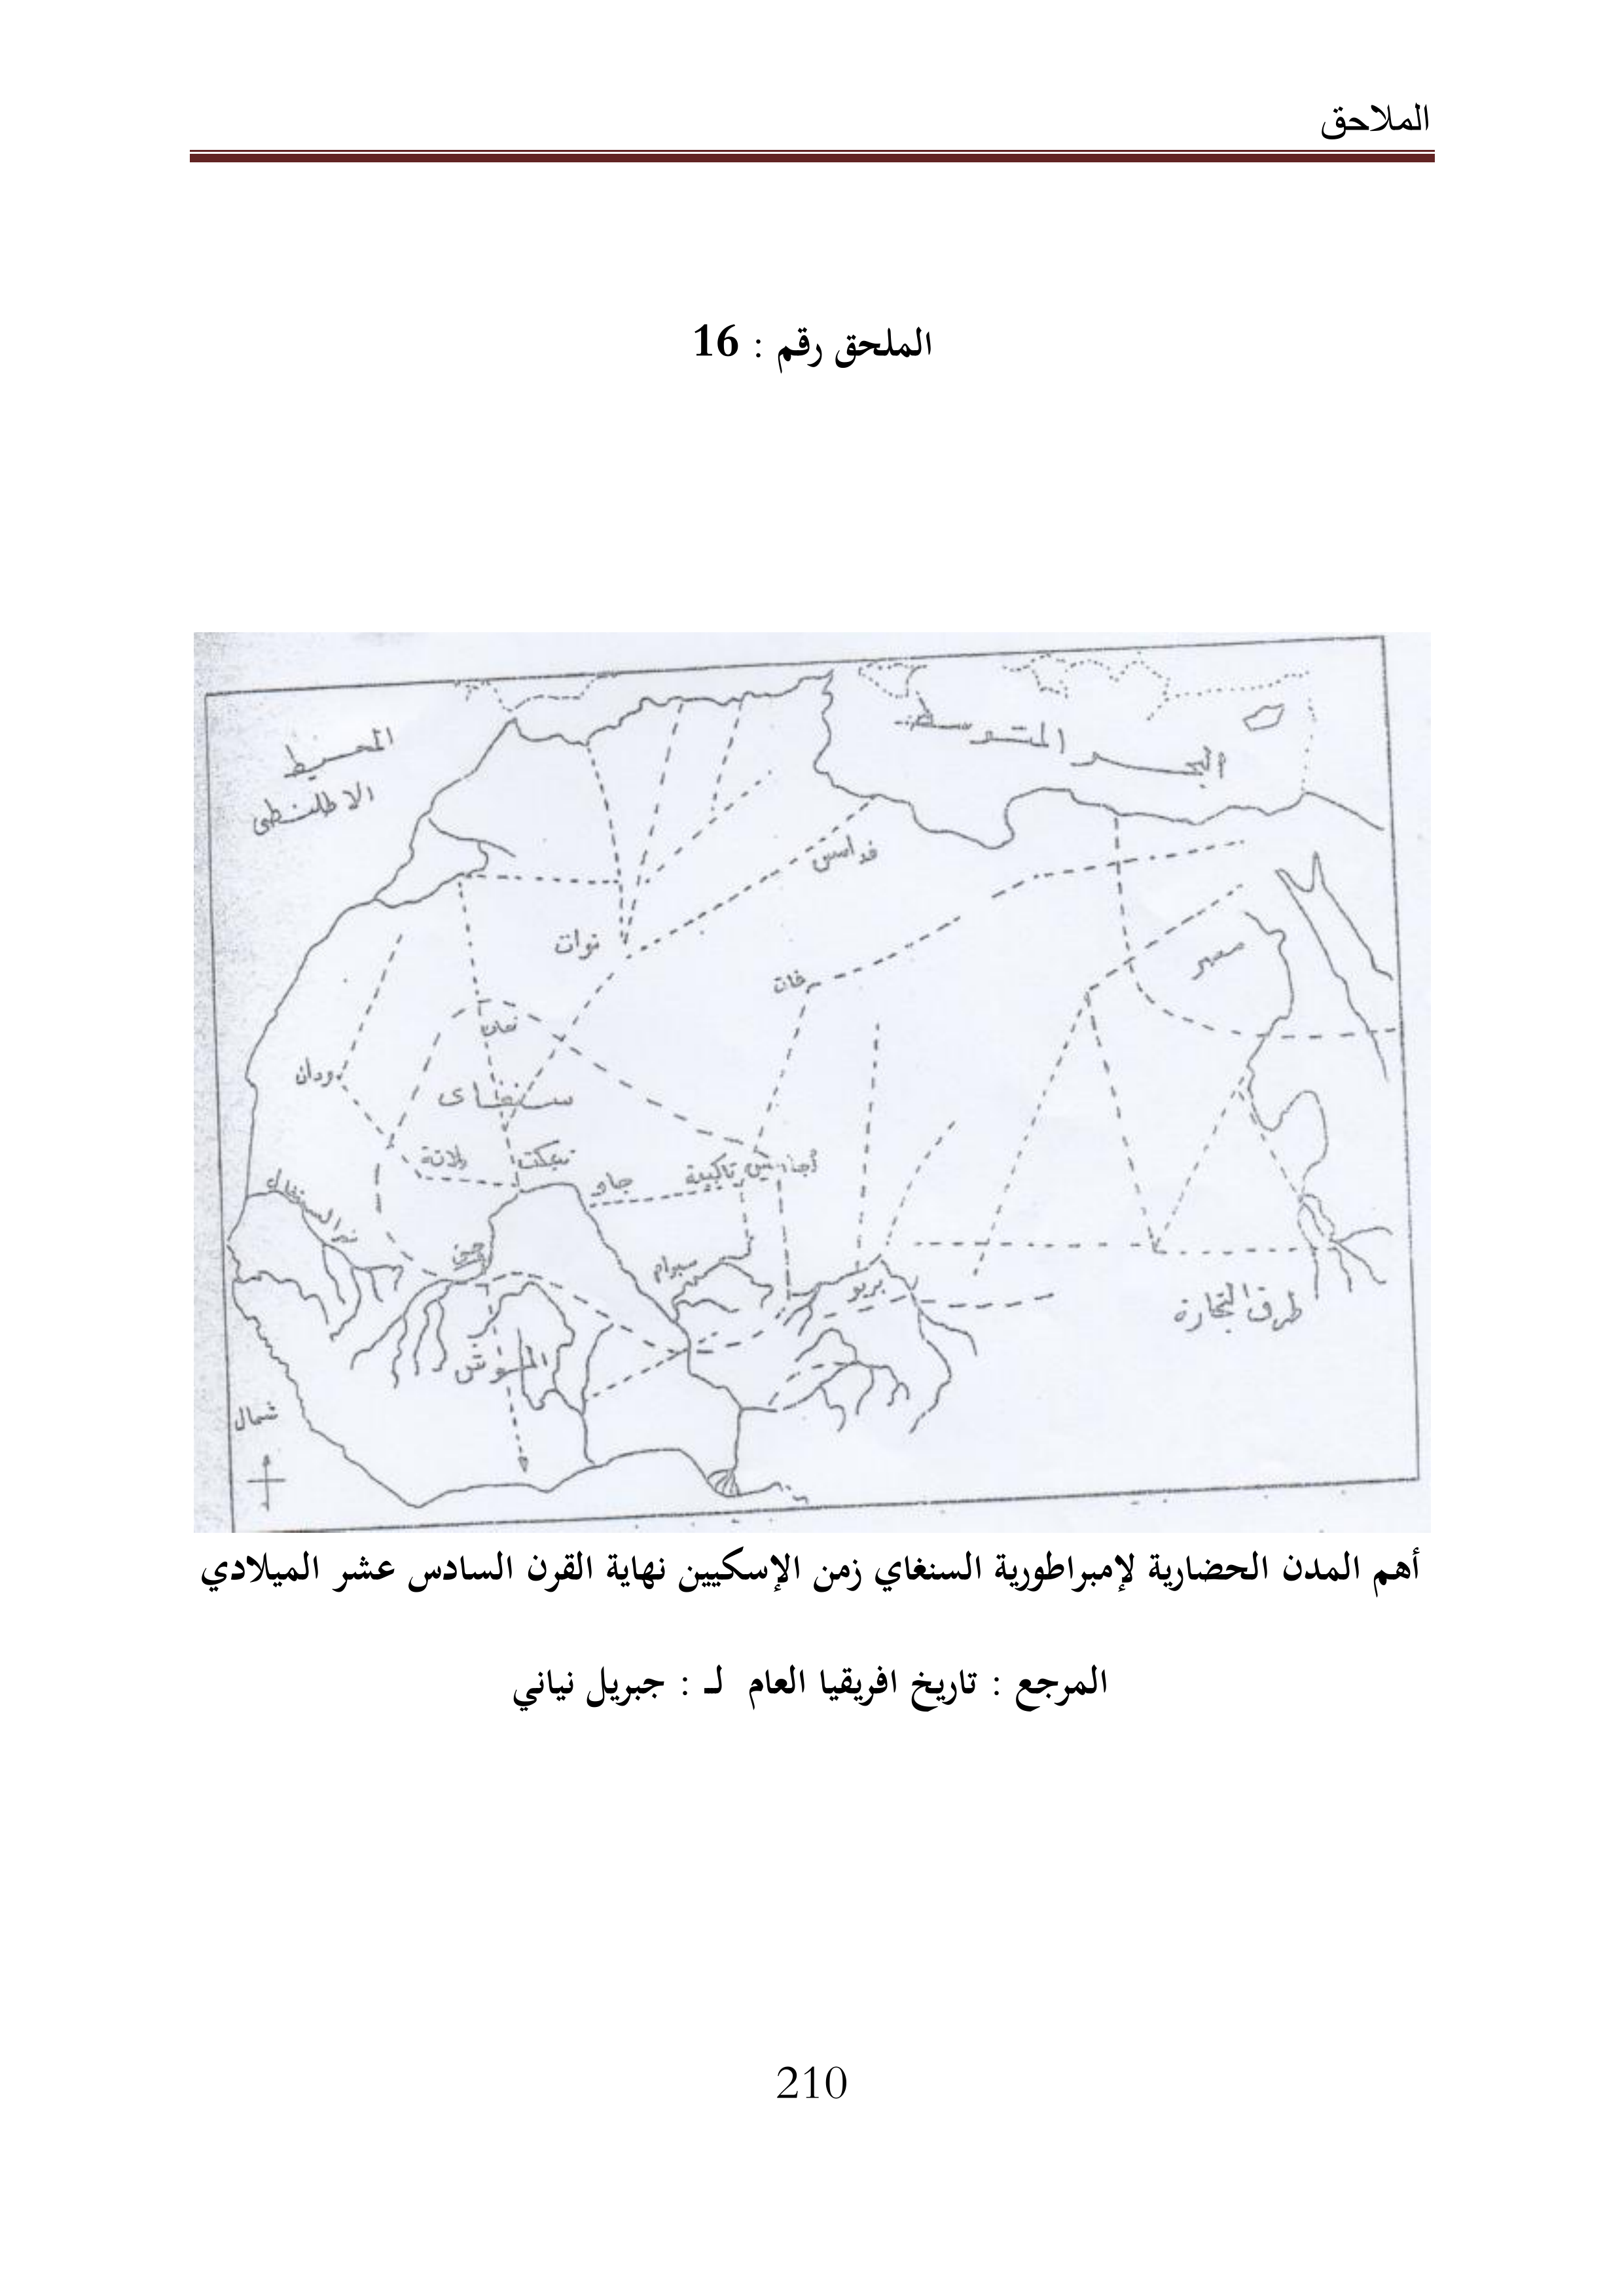 الملاحق
الملحق رقم : 16
المحيط
الاطلنطى
البحر المتوسط
فداس
توات
فان
مصر
ودان
سنغاى
ولاتة
تمبكت
جاو
تاكيية
نهر السنغال
جنى
سيرام
بربو
طرق التجارة
الموش
شمال
أهم المدن الحضارية لإمبراطورية السنغاي زمن الإسكيين نهاية القرن السادس عشر الميلادي
المرجع : تاريخ افريقيا العام لـ : جبريل نياني
210